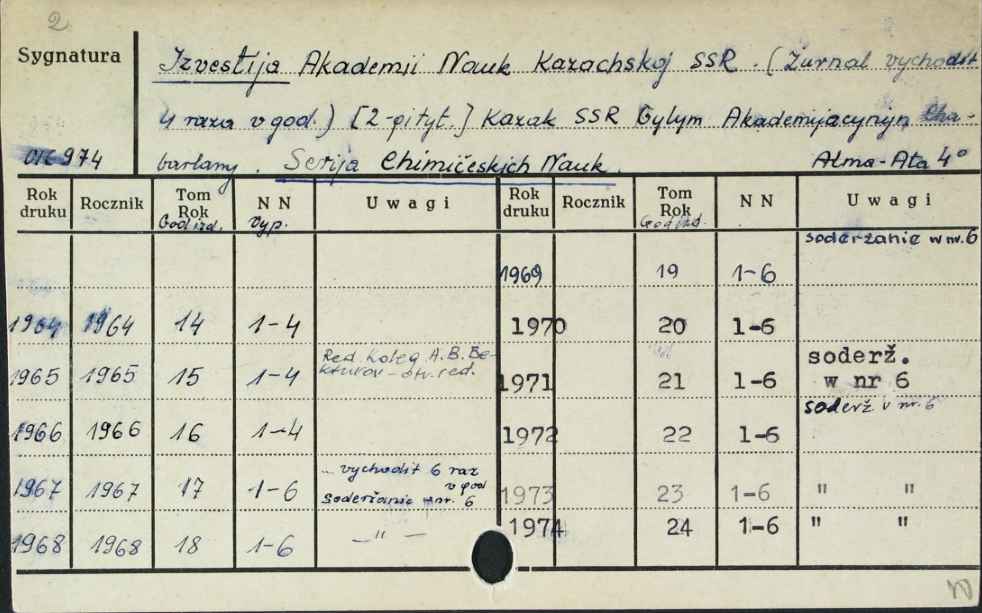 2
Sygnatura
Izvestija Akademii Nauk Kazachskoj SSR. (Žurnal vychodit
4 raza v god.) [2-oj tyt.] Kazak SSR Gylym Akademijacynyn Cha-
barlany. Serija Chimičeskich Nauk. Alma-Ata 4°
016974
Rok druku Rocznik Tom Rok God izd. NN Vyp. Uwagi Rok druku Rocznik Tom Rok God izd. NN Uwagi
1969 19 1-6 soderžanie w nr. 6
1964 1964 14 1-4 1970 20 1-6
1965 1965 15 1-4 Red. koleg A.B. Be-
kturov - otv. red. 1971 21 1-6 soderž.
w nr 6
1966 1966 16 1-4 1972 22 1-6 soderž v nr. 6
1967 1967 17 1-6 ... vychodit 6 raz
v god
soderžanie w nr. 6 1973 23 1-6 " "
1968 1968 18 1-6 - " - 1974 24 1-6 " "